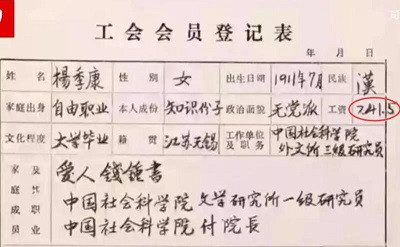 工会会员登记表
年 月 日
姓名 楊季康 性别 女 出生日期 1911年7月 民族 漢
家庭出身 自由职业 本人成份 知识份子 政治面貌 无党派 工资 241.5
文化程度 大学毕业 籍贯 江苏无锡 工作单位及职务 中国社会科学院外文所三级研究员
家及
庭其
成职
员业
爱人 錢鍾書
中国社会科学院文学研究所一级研究员
中国社会科学院付院長